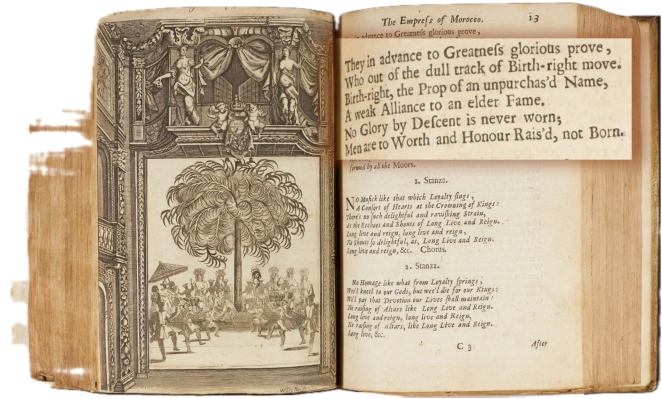 The Empreſs of Morocco. 13
in advance to Greatneſs glorious prove,
They in advance to Greatneſs glorious prove,
Who out of the dull track of Birth-right move.
Birth-right, the Prop of an unpurchas'd Name,
A weak Alliance to an elder Fame.
No Glory by Deſcent is never worn;
Men are to Worth and Honour Rais'd, not Born.
formed by all the Moors.
1. Stanza.
NO Muſick like that which Loyalty ſings,
A Conſort of Hearts at the Crowning of Kings:
There's no ſuch delightful and raviſhing Strain,
As the Ecchoes and Shouts of Long Live and Reign.
Long live and reign, long live and reign,
No Shouts ſo delightful, as, Long Live and Reign.
Long live and reign, &c. Chorus.
2. Stanza.
No Homage like what from Loyalty ſprings,
Wee'l kneel to our Gods, but wee'l die for our Kings:
We'l pay that Devotion our Lives ſhall maintain:
No raiſing of Altars like Long Live and Reign.
Long live and reign, long live and Reign,
No raiſing of Altars, like Long Live and Reign.
Long live, &c.
C 3 After